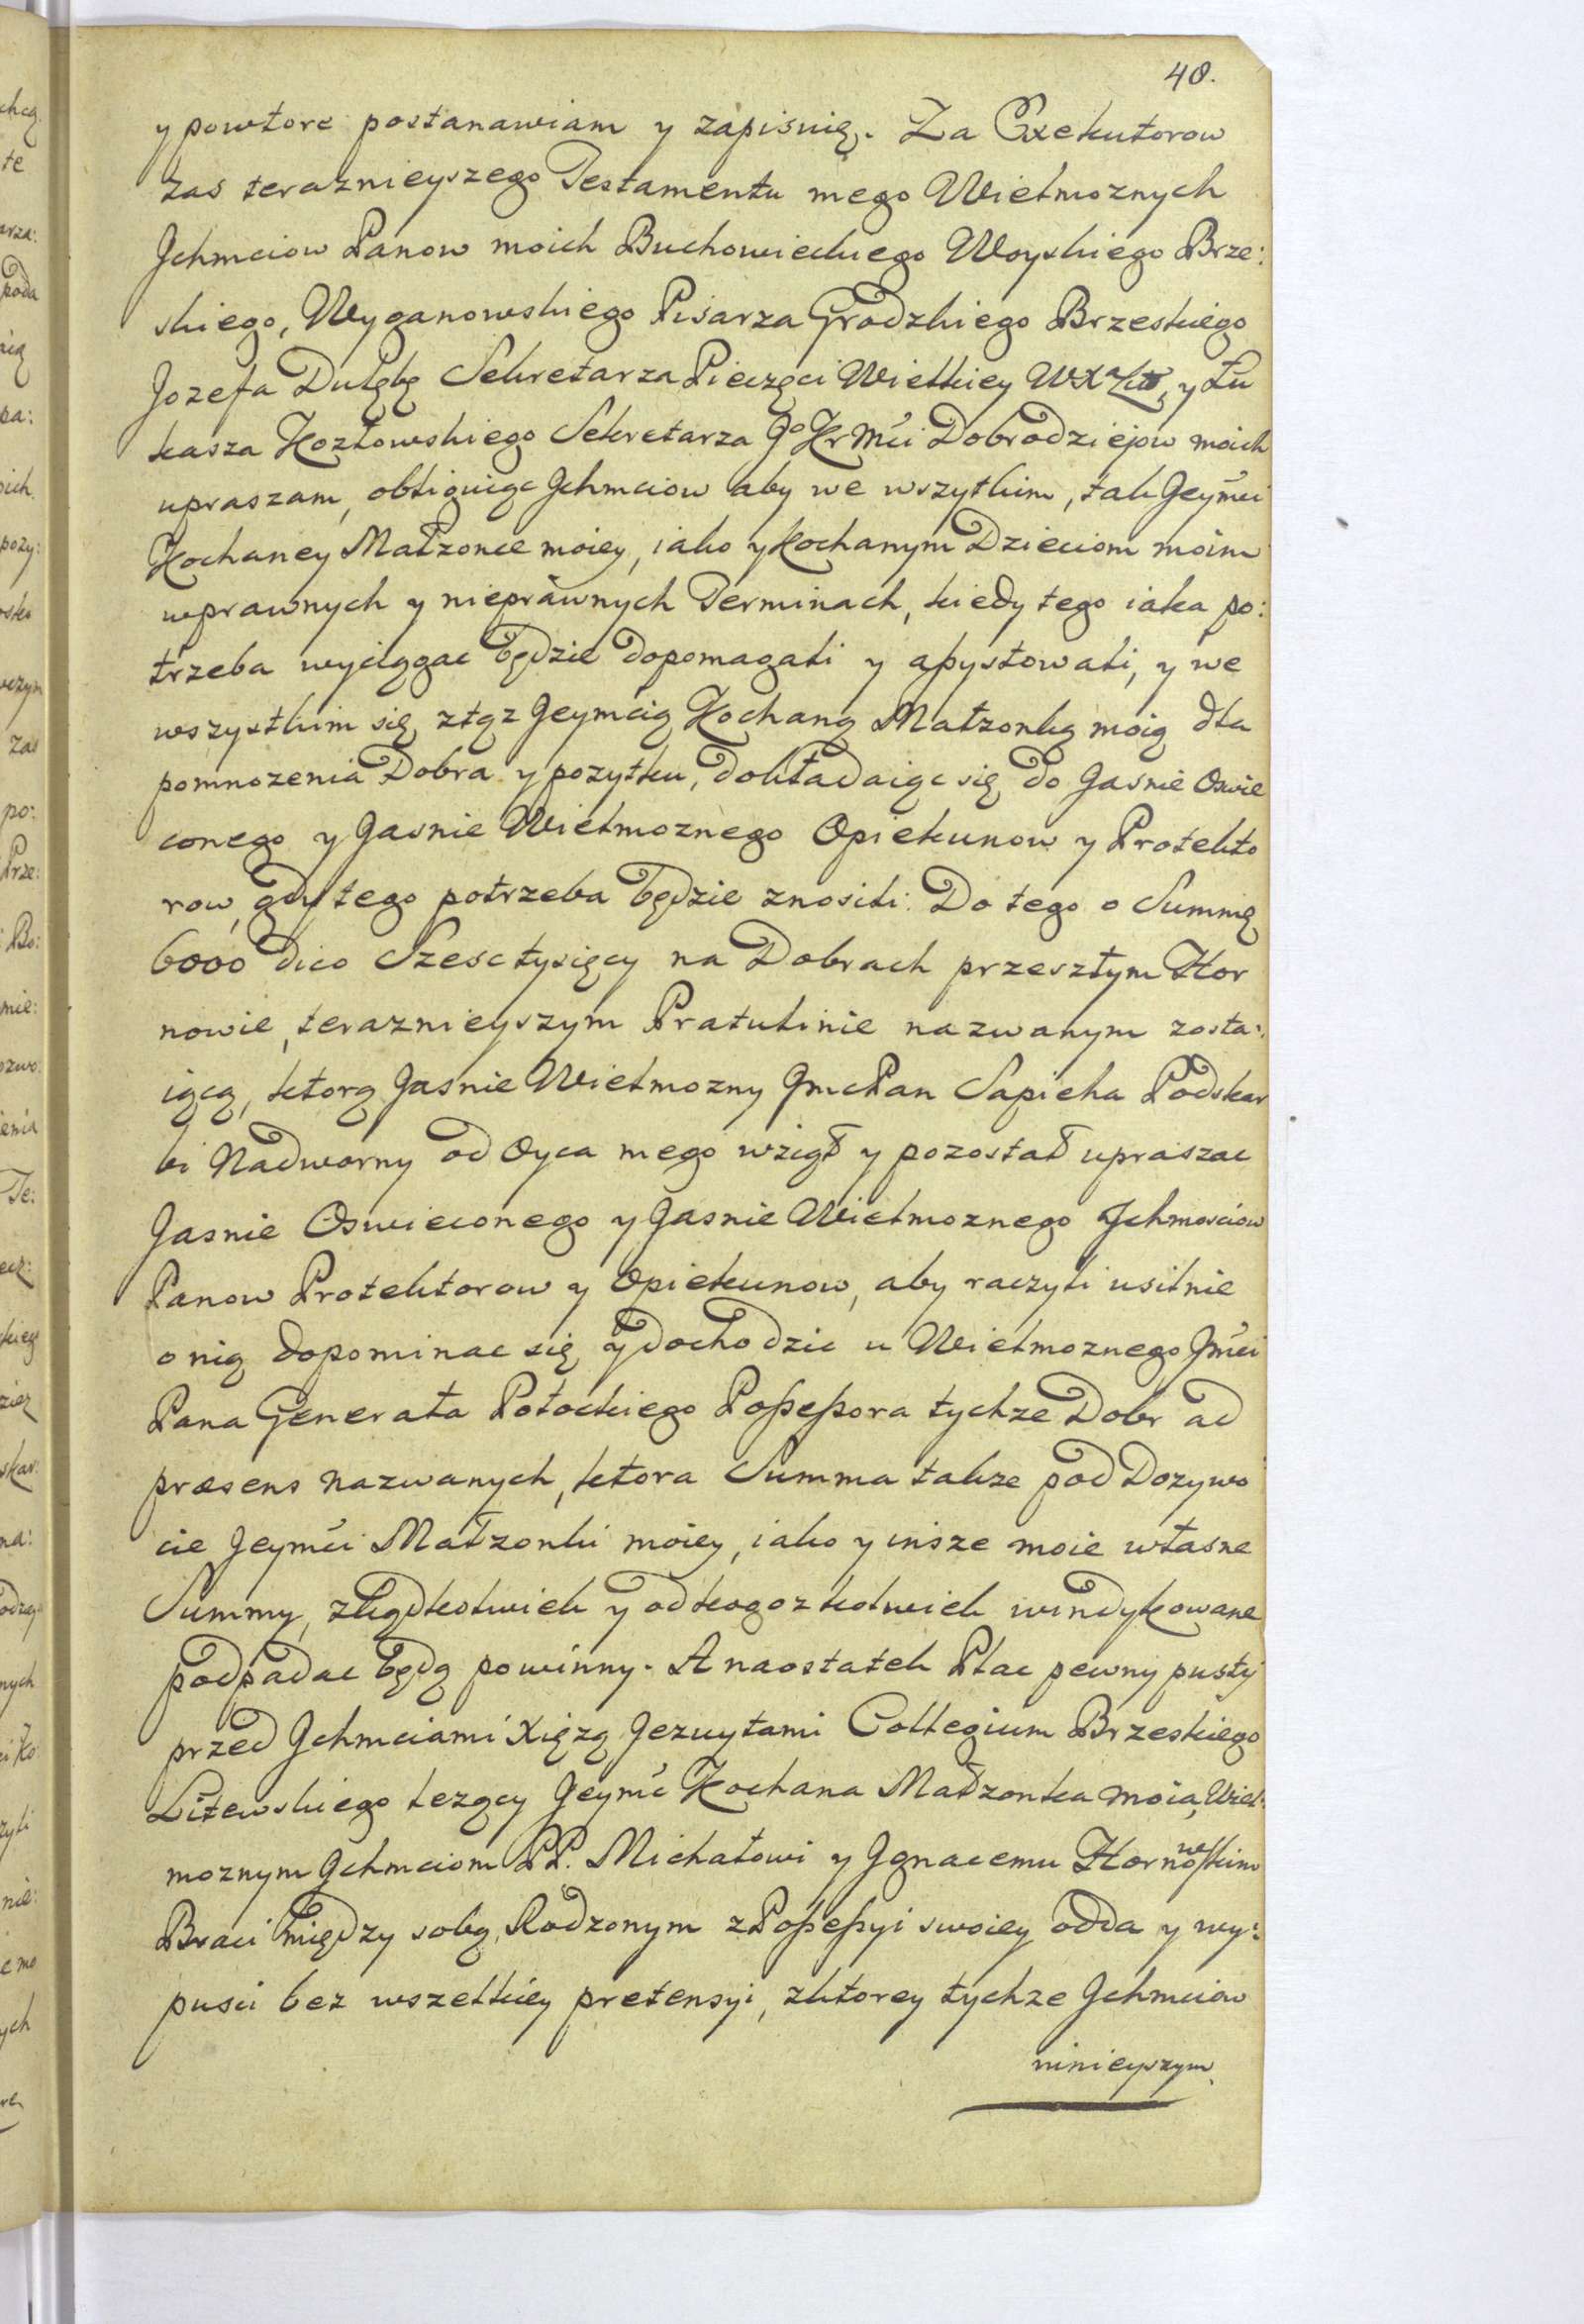 40.
y powtore postanawiam y zapisuię. Za Exekutorow
zas teraznieyszego Testamentu mego Wielmoznych
Jchmciow Panow moich Buchowieckiego Woyskiego Brze:
skiego, Wyganowskiego Pisarza Grodzkiego Brzeskiego
Jozefa Dulębę Sekretarza Pieczęci Wielkiey WXLitt, y Łu
kasza Kozłowskiego Sekretarza JoKrMći Dobrodziejow moich
upraszam, obliguiąc Jchmciow aby we wszytkim, tak Jeymći
Kochaney Małzonce moiey, iako y Kochanym Dzieciom moim
wprawnych y nieprawnych Terminach, kiedy tego iaka po:
trzeba wyciągac będzie dopomagali y assystowali, y we
wszystkim się ztąz Jeymcią Kochaną Małzonką moią dla
pomnozenia Dobra y pozytku, dokładaiąc się do Jasnie Oswie
conego y Jasnie Wielmoznego Opiekunow y Protekto
row, gdy tego potrzeba będzie znosili. Do tego o Summę
6000 dico Szesc tysięcy na Dobrach przeszłym Hor
nowie, teraznieyszym Pratulinie nazwanym zosta:
iącą, ktorą Jasnie Wielmozny JmcPan Sapieha Podskar
bi Nadworny od Oyca mego wziął y pozostał upraszac
Jasnie Oswieconego y Jasnie Wielmoznego Jchmosciow
Panow Protektorow y Opiekunow, aby raczyli usilnie
o nię dopominac się y dochodzic u Wielmoznego Jmći
Pana Generała Potockiego Possessora tychze Dobr ad
præsens nazwanych, ktora Summa takze pod Dozywo
cie Jeymći Małzonki moiey, iako y insze moie własne
Summy, zkądkolwiek y od kogoz kolwiek windykowane
podpadac będą powinny. A naostatek Plac pewny pusty
przed Jchmciami Xiężą Jezuytami Collegium Brzeskiego
Litewskiego lezący Jeymć Kochana Małzonka moia, Wiel:
moznym Jchmciom PP. Michałowi y Jgnacemu Hornowskim
Braci między sobą Rodzonym z Possessyi swoiey odda y wy:
pusci bez wszelkiey pretensyi, zktorey tychze Jchmciow
ninieyszym